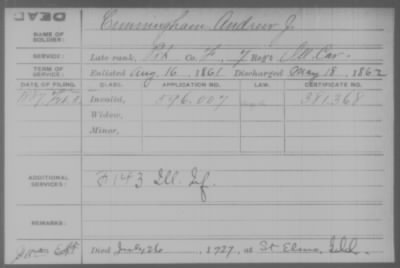 DEAD
NAME OF SOLDIER: Cunningham Andrew J.
SERVICE: Late rank, Pvt Co. F, 7 Reg't Ill. Cav.
TERM OF SERVICE: Enlisted Aug. 16, 1861 Discharged May 18, 1862
DATE OF FILING. CLASS. APPLICATION NO. LAW. CERTIFICATE NO.
1887 Invalid, 596.007 381.368
Widow,
Minor,
ADDITIONAL SERVICES: 143 Ill. Inf.
REMARKS:
Died July 26, 1927, at St Elmo, Ill.